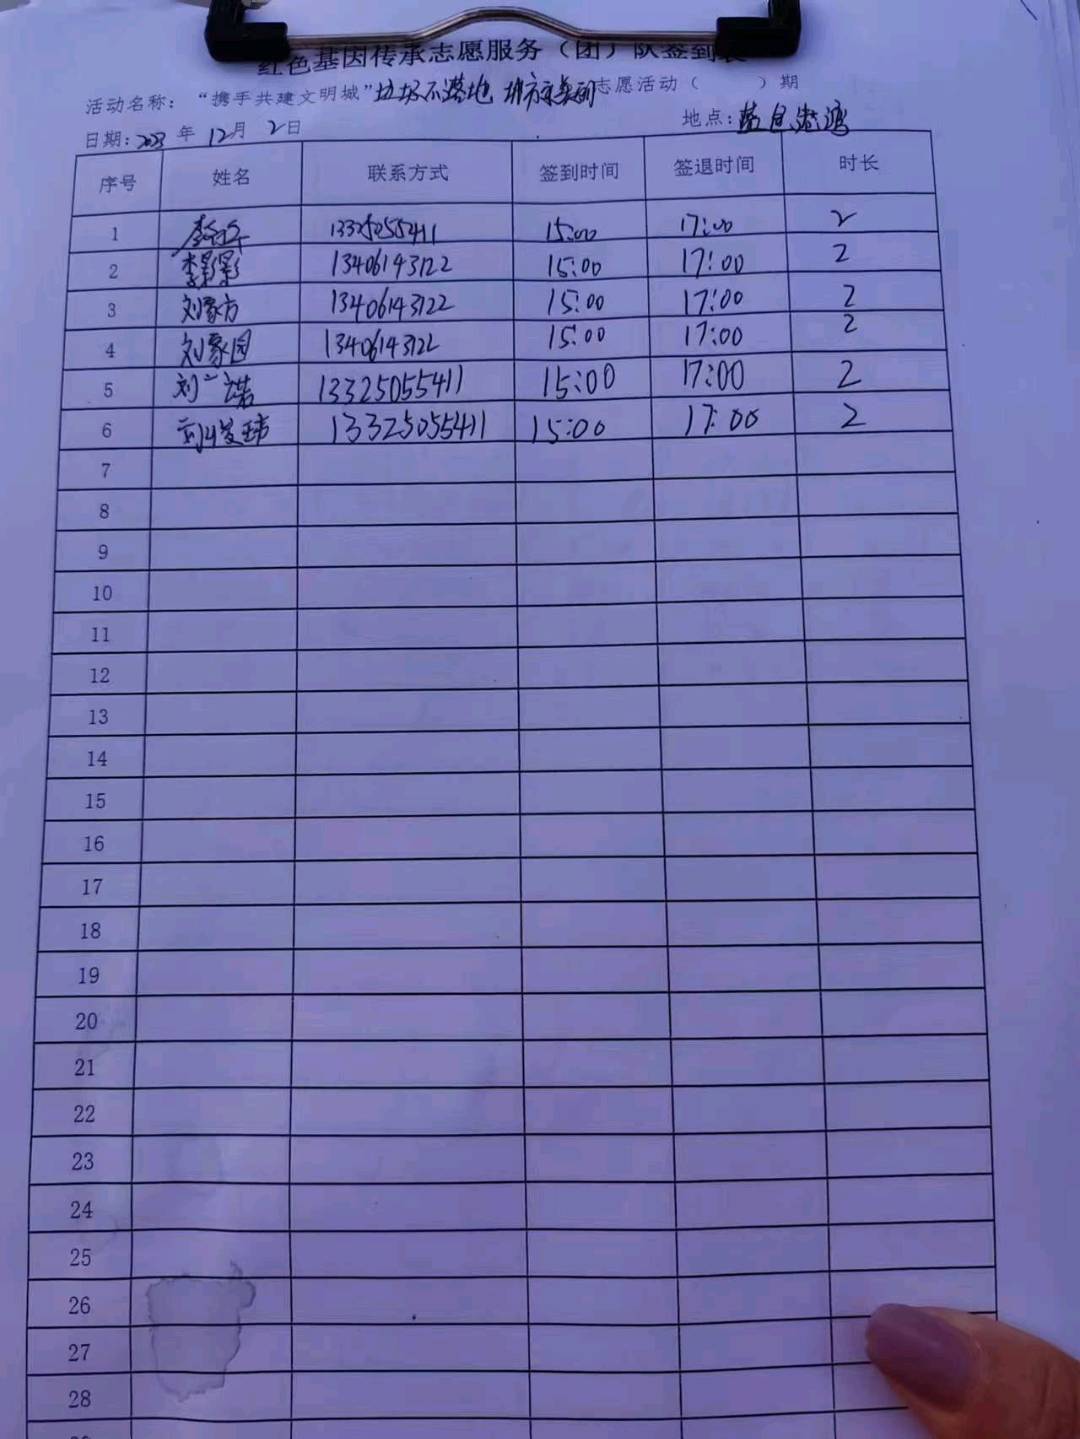 红色基因传承志愿服务（团）队签到表
活动名称：“携手共建文明城”垃圾不落地 城市更美丽 志愿活动（ ）期
日期：2023年 12月 2日 地点：蓝色港湾
序号 姓名 联系方式 签到时间 签退时间 时长
1 13325055411 15:00 17:00 2
2 李影影 13406143122 15:00 17:00 2
3 刘家方 13406143122 15:00 17:00 2
4 刘家园 13406143122 15:00 17:00 2
5 刘一诺 13325055411 15:00 17:00 2
6 13325055411 15:00 17:00 2
7
8
9
10
11
12
13
14
15
16
17
18
19
20
21
22
23
24
25
26
27
28